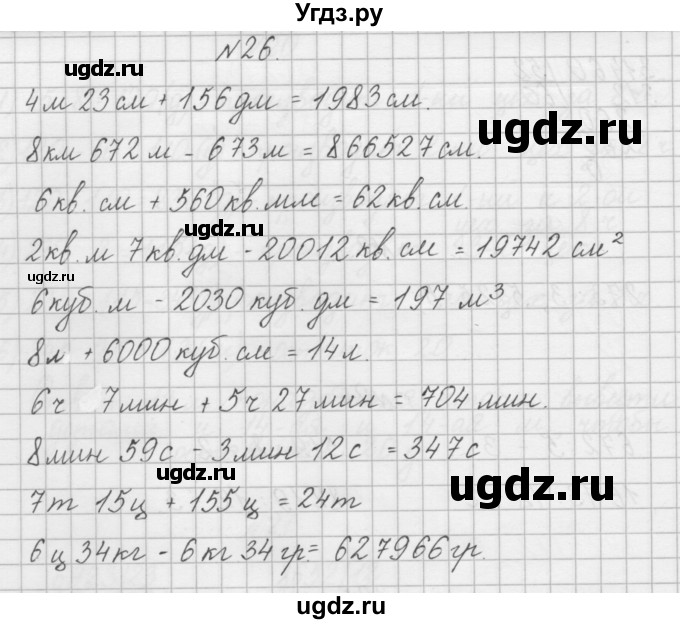 Угдз.ру
№26.
ugdz.ru
4м 23см + 156дм = 1983см.
ugdz.ru
8км 672м - 673м = 866527см.
6кв. см + 560кв.мм = 62кв.см.
ugdz.ru
2кв.м 7кв.дм - 20012 кв. см = 19742 см²
ugdz.ru
6куб. м - 2030 куб. дм = 197 м³
8л + 6000куб.см = 14л.
6ч 7мин + 5ч 27мин = 704 мин.
8мин 59с - 3мин 12с = 347с
ugdz.ru
ugdz.ru
7т 15ц + 155ц = 24т
6ц 34кг - 6кг 34гр.= 627966гр.
ugdz.ru